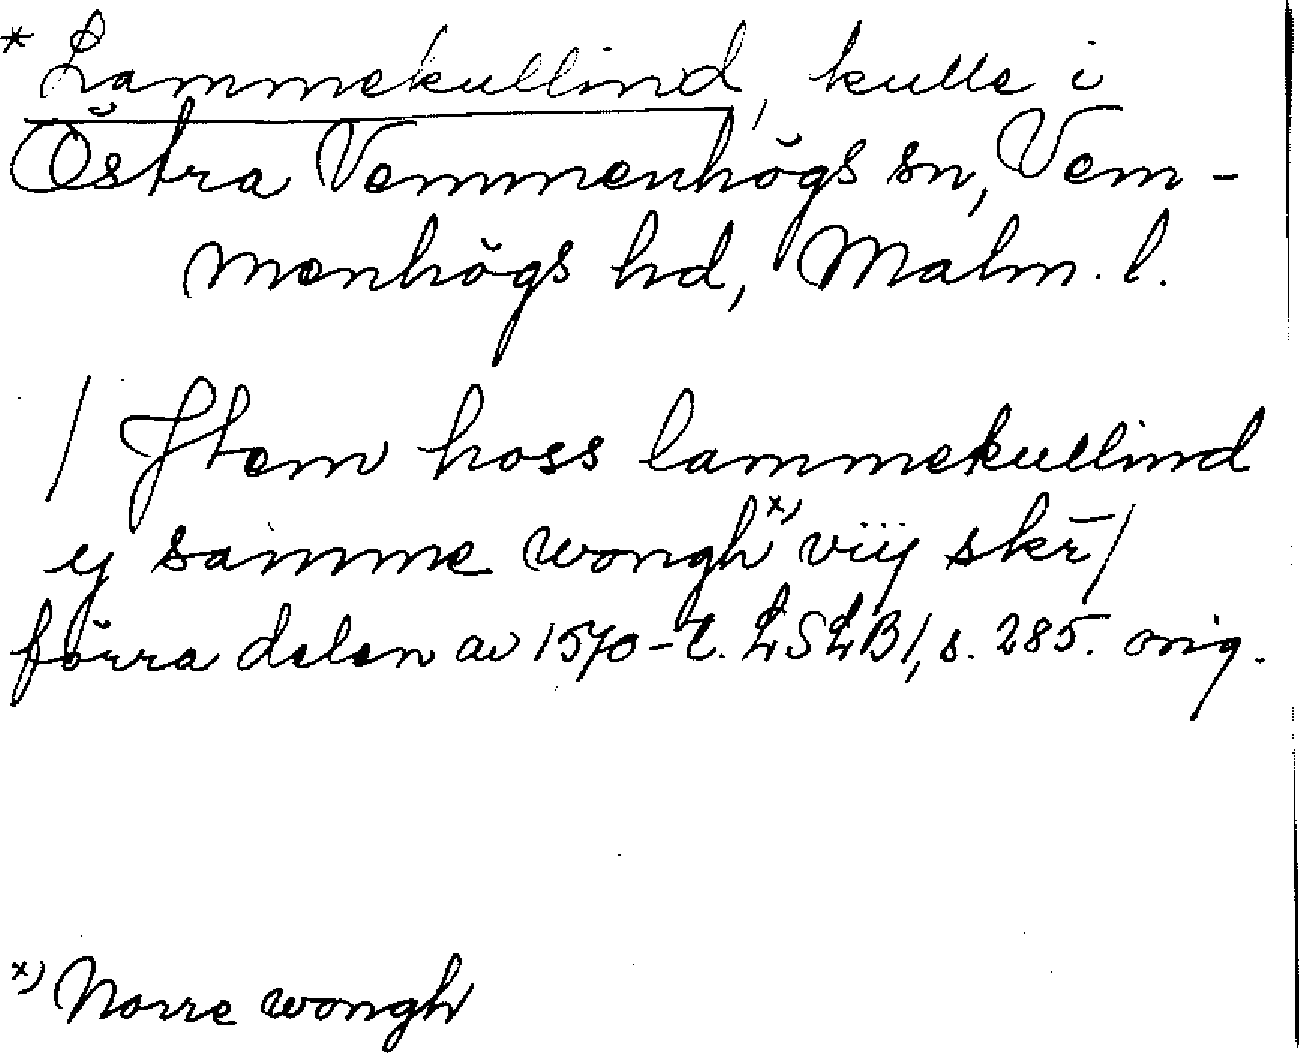 * Lammekullind, kulle i
Östra Vemmenhögs sn, Vem-
menhögs hd, Malm. l.
/ Jtem hoss lammekullind
ij samme wongh x) viij skr̄ /
förra delen av 1570-t. LSLB1, s. 285. orig.
x) Norre wongh